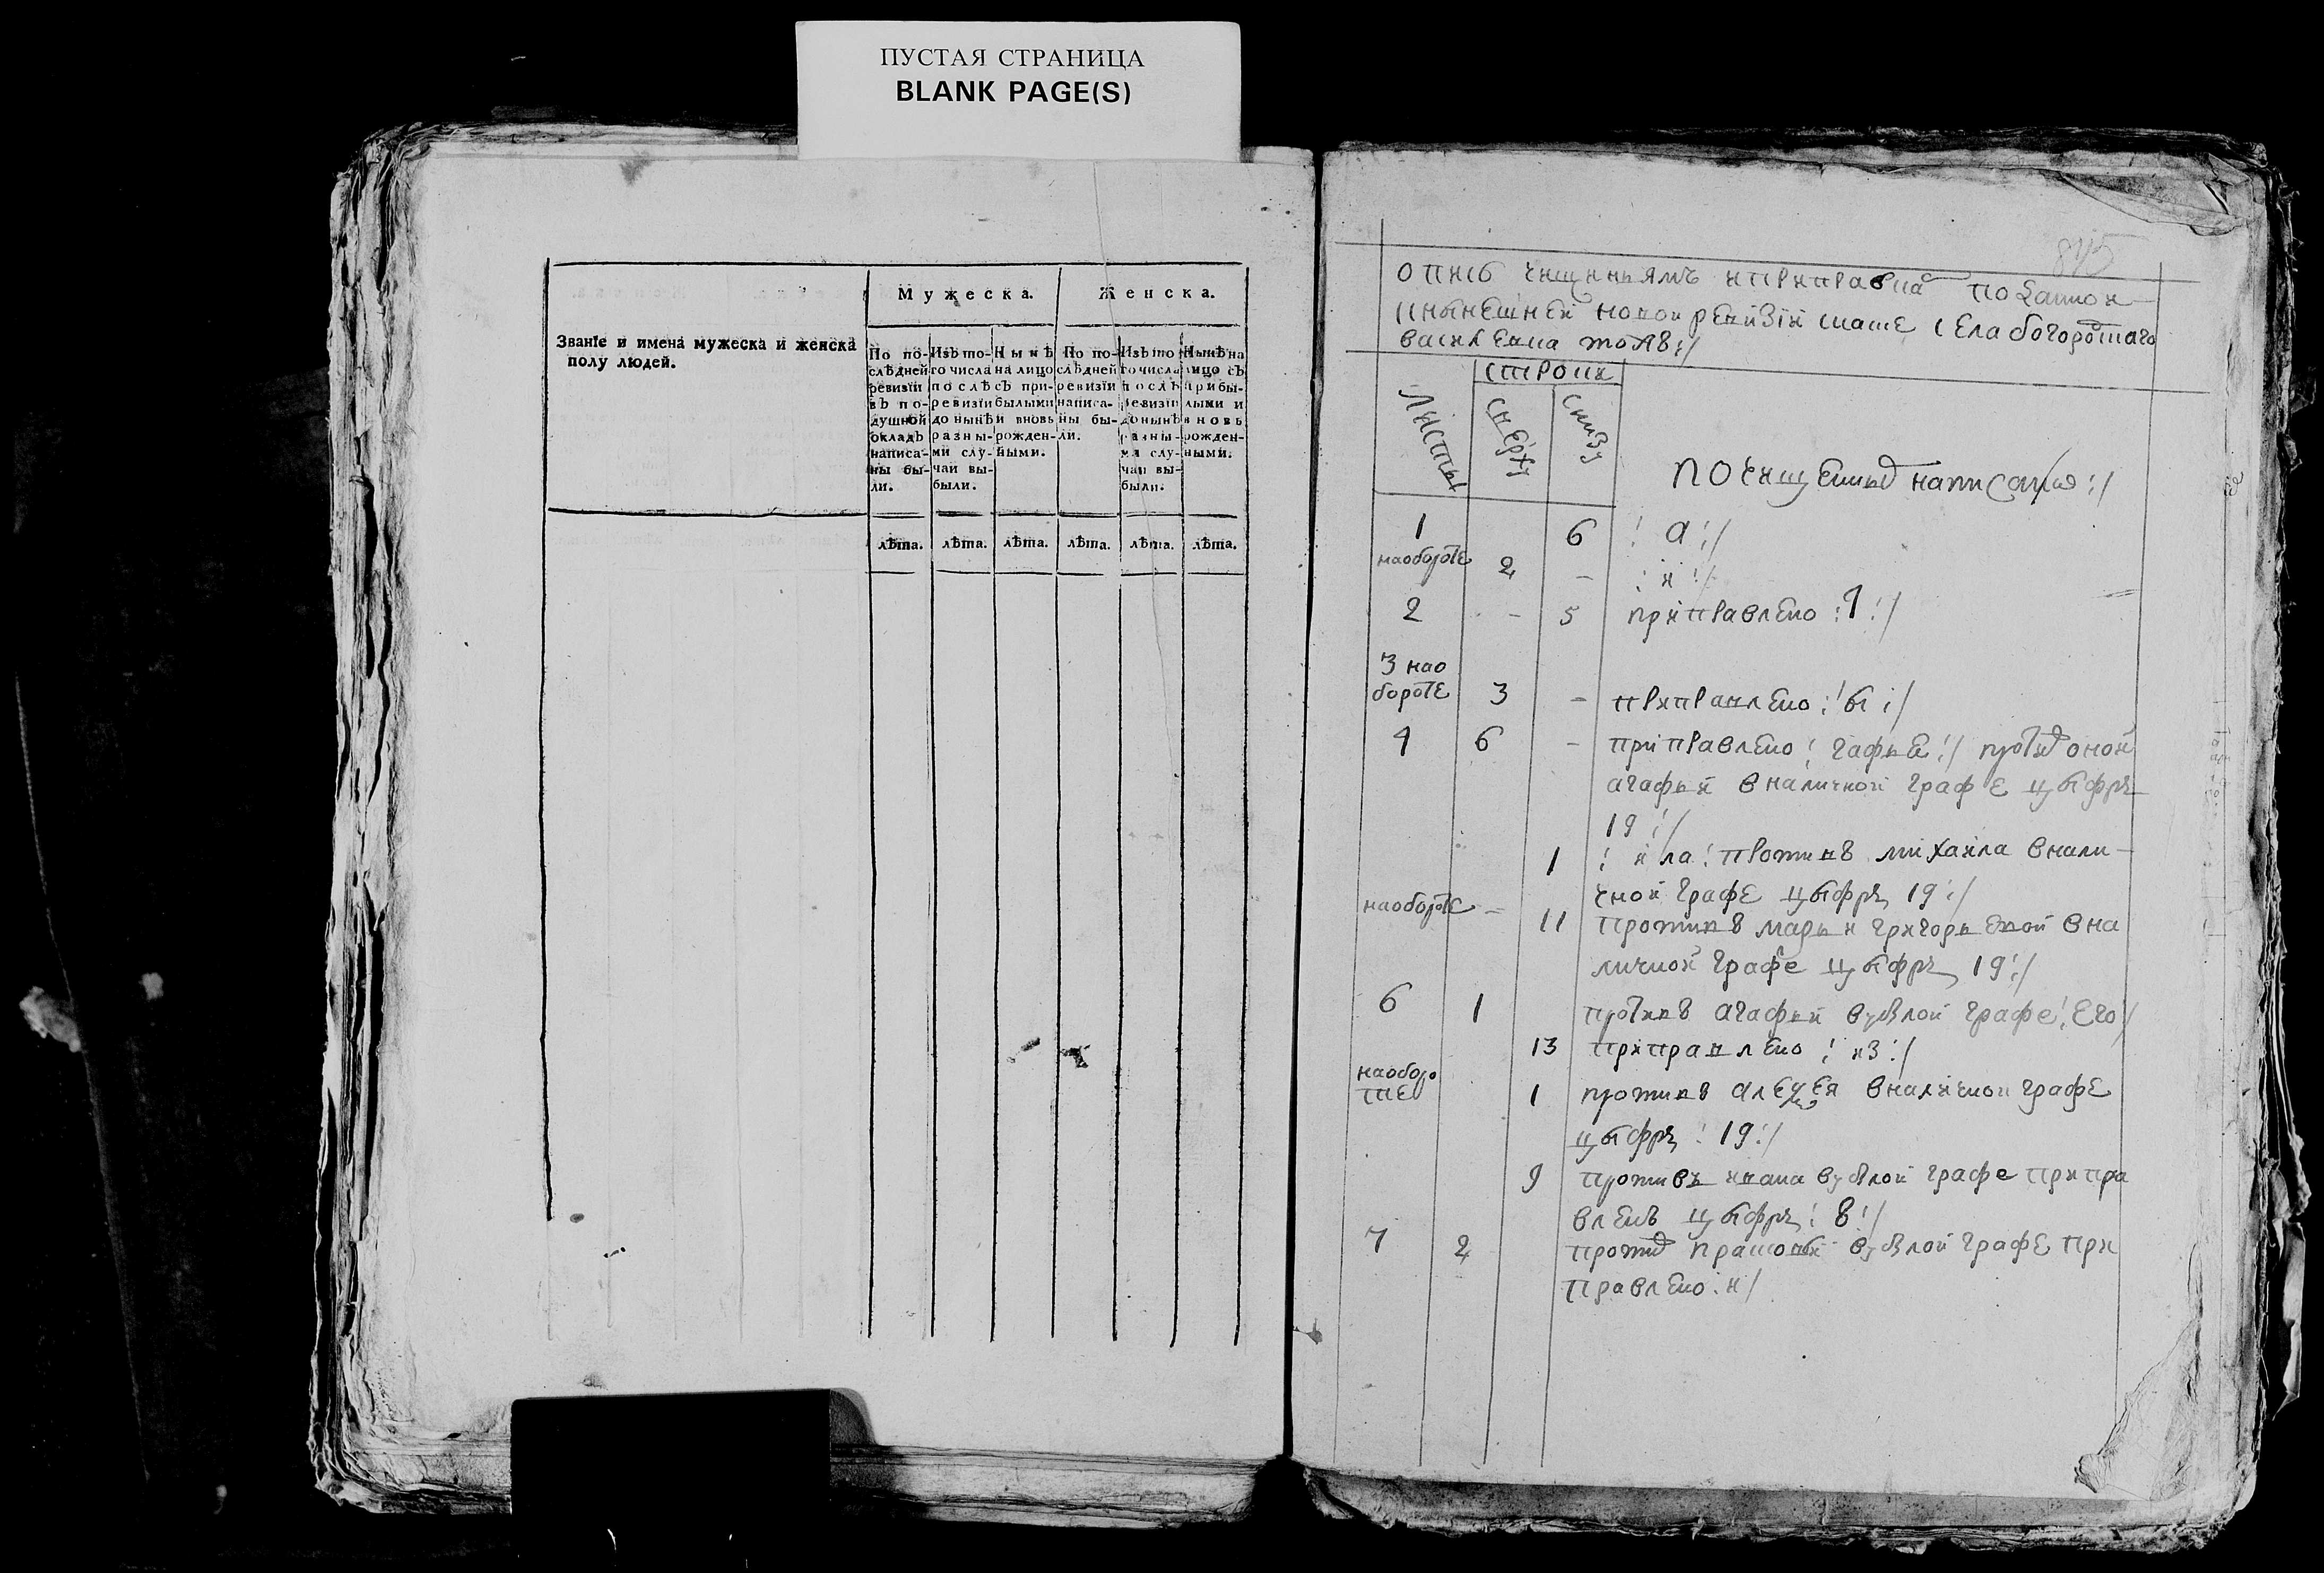 ПУСТАЯ СТРАНИЦА
BLANK PAGE(S)
Званіе и имена мужеска и женска
полу людей.
Мужеска.
Женска.
По по-
слѣдней
ревизіи
въ по-
душной
окладъ
написа-
ны бы-
ли.
Изъ то-
го числа
послѣ
ревизіи
до нынѣ
разны-
ми слу-
чаи вы-
были.
Нынѣ
на лицо
съ при-
былыми
и вновь
рожден-
ными.
По по-
слѣдней
ревизіи
написа-
ны бы-
ли.
Изъ то
го числа
послѣ
ревизіи
до нынѣ
разны-
ми слу-
чаи вы-
были.
Нынѣ на
лицо съ
прибы-
лыми и
вновь
рожден-
ными.
лѣта. лѣта. лѣта. лѣта. лѣта. лѣта.
845
опись чищеньямъ и приправка по
нынешней новой ревизіи села
Листы
строки
сверху
снизу
почищенымъ написано :/
1 6 : а :/
наоборотѣ 2 - : и :/
2 - 5 приправлено : 9 :/
3 нао
боротѣ 3 - приправлено : ы :/
4 6 - приправлено : гафьѣ :/ противъ оной
агафьи в наличной графе цыфръ
19 :/
1 : ила : противъ михаила в нали-
чной графе цыфръ 19 :/
наоборотѣ - 11 противъ марьи григорьевой в на
личной графе цыфръ 19 :/
6 1 противъ агафьи в убылой графе : его :/
13 приправлено : из :/
наоборо
тѣ 1 противъ алексея в наличной графе
цыфръ : 19 :/
9 противъ ивана в убылой графе припра
вленъ цыфръ : 8 :/
7 2 противъ прасковьи в убылой графе при
правлено : и /